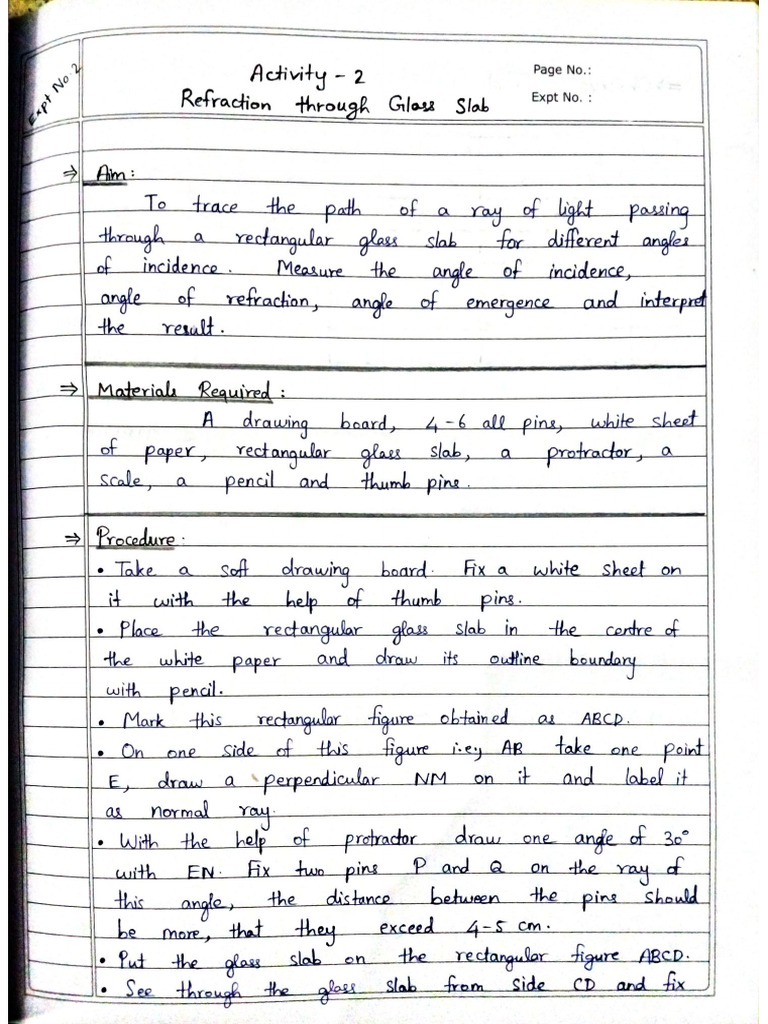 Expt No. 2
Activity - 2
Page No.:
Refraction through Glass Slab
Expt No. :
⇒ Aim :
To trace the path of a ray of light passing
through a rectangular glass slab for different angles
of incidence. Measure the angle of incidence,
angle of refraction, angle of emergence and interpret
the result.
⇒ Materials Required :
A drawing board, 4-6 all pins, white sheet
of paper, rectangular glass slab, a protractor, a
scale, a pencil and thumb pins.
⇒ Procedure :
• Take a soft drawing board. Fix a white sheet on
it with the help of thumb pins.
• Place the rectangular glass slab in the centre of
the white paper and draw its outline boundary
with pencil.
• Mark this rectangular figure obtained as ABCD.
• On one side of this figure i.e, AB take one point
E, draw a perpendicular NM on it and label it
as normal ray.
• With the help of protractor draw one angle of 30°
with EN. Fix two pins P and Q on the ray of
this angle, the distance between the pins should
be more, that they exceed 4-5 cm.
• Put the glass slab on the rectangular figure ABCD.
• See through the glass slab from side CD and fix